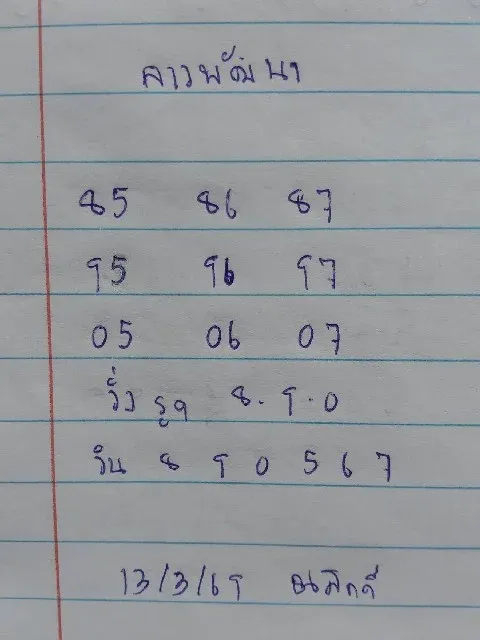 ลาวพัฒนา
85 86 87
95 96 97
05 06 07
วิ่ง รูด 8. 9. 0
วิน 8 9 0 5 6 7
13/3/69